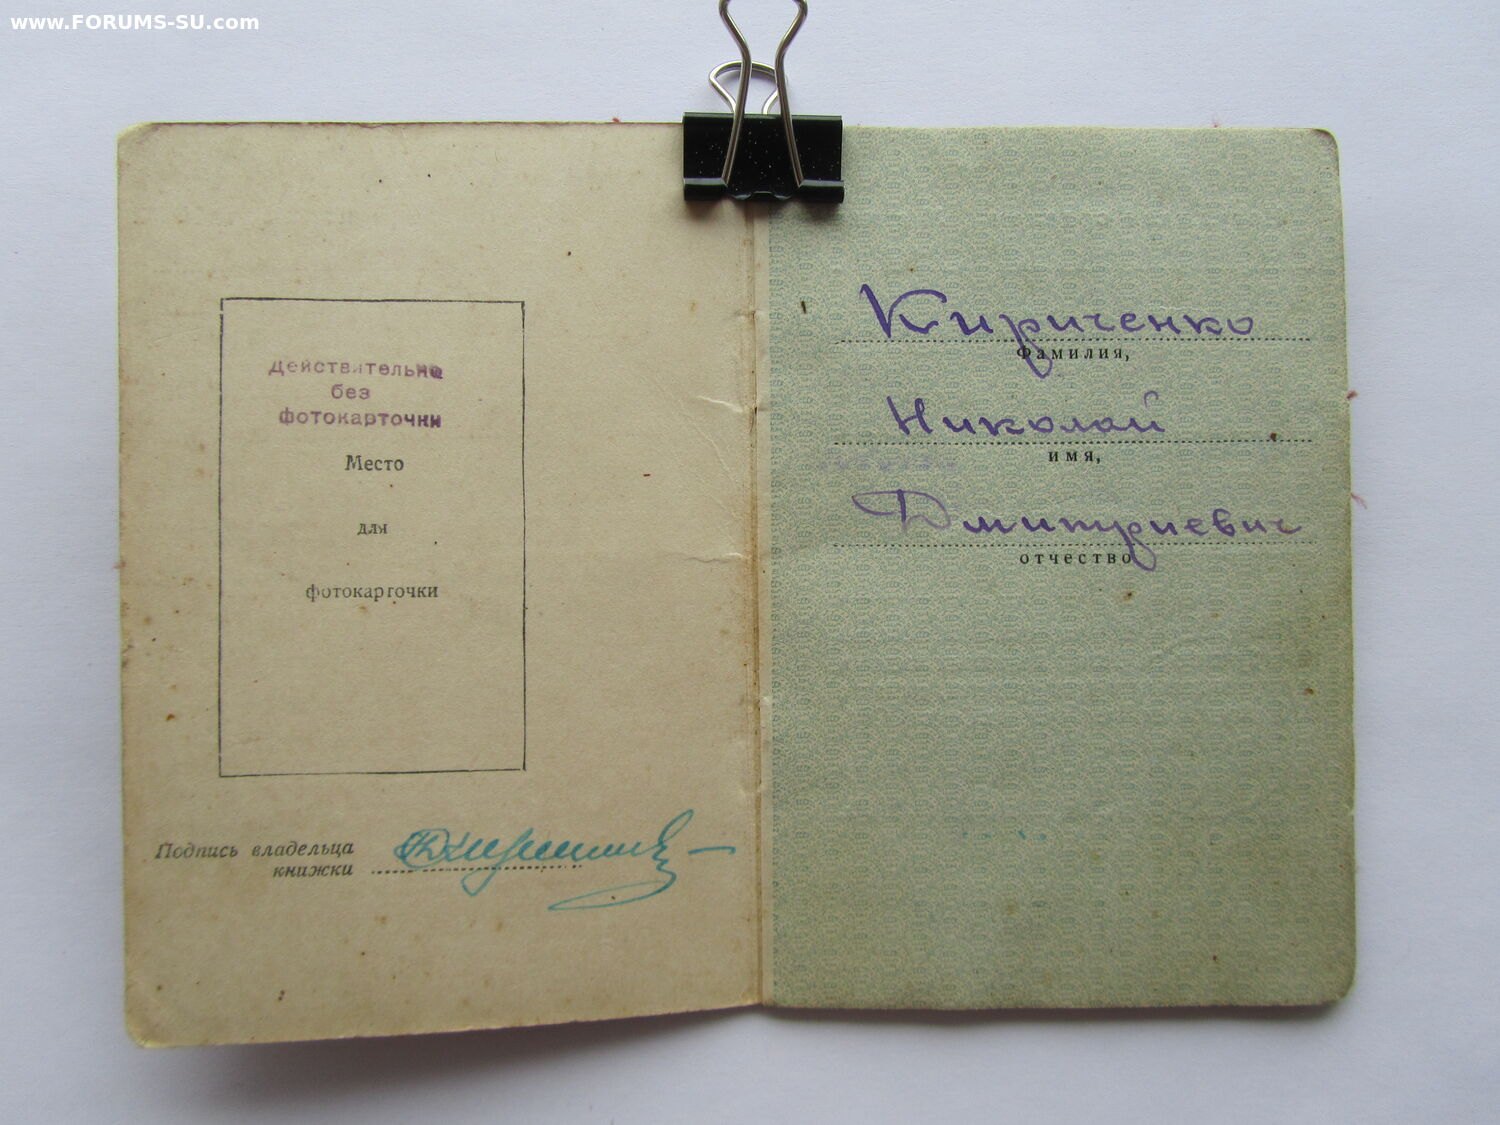 www.FORUMS-SU.com
Действительна
без
фотокарточки
Место
для
фотокарточки
Подпись владельца
книжки
Кириченко
Фамилия,
Николай
имя,
Дмитриевич
отчество